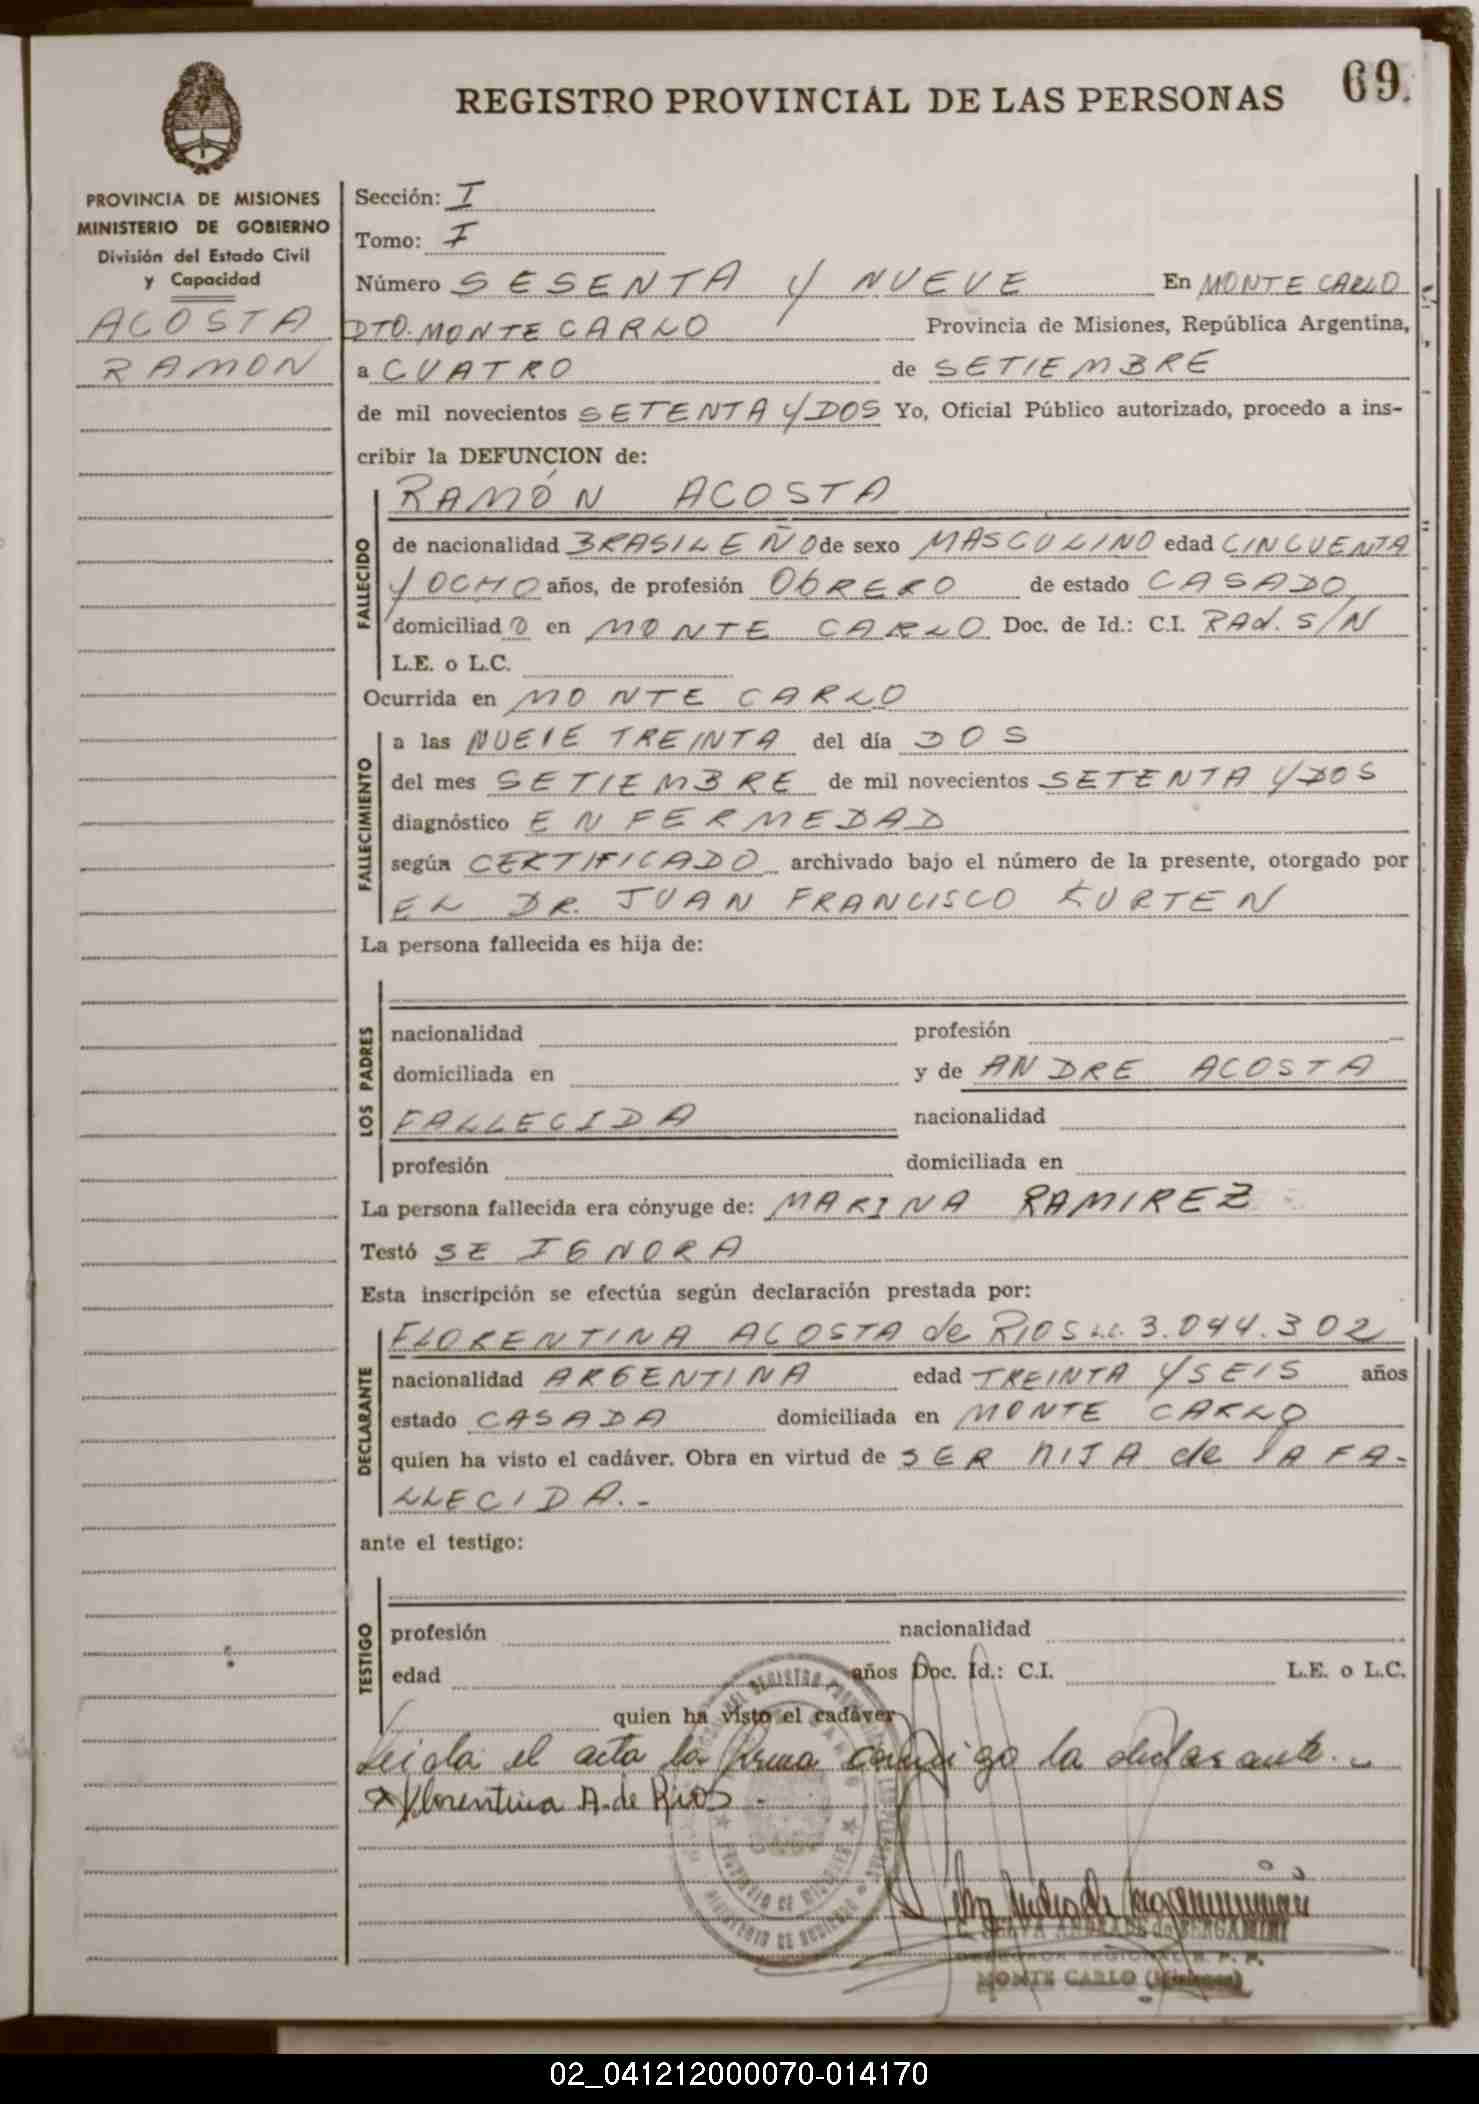 REGISTRO PROVINCIAL DE LAS PERSONAS
69.
PROVINCIA DE MISIONES
MINISTERIO DE GOBIERNO
División del Estado Civil
y Capacidad
ACOSTA
RAMON
Sección: I
Tomo: I
Número SESENTA Y NUEVE En MONTE CARLO
DTO. MONTE CARLO Provincia de Misiones, República Argentina,
a CUATRO de SETIEMBRE
de mil novecientos SETENTA Y DOS Yo, Oficial Público autorizado, procedo a ins-
cribir la DEFUNCION de:
FALLECIDO
RAMÓN ACOSTA
de nacionalidad BRASILEÑO de sexo MASCULINO edad CINCUENTA
Y OCHO años, de profesión ObRERO de estado CASADO
domiciliado en MONTE CARLO Doc. de Id.: C.I. RAd. S/N
L.E. o L.C.
Ocurrida en MONTE CARLO
FALLECIMIENTO
a las NUEVE TREINTA del día DOS
del mes SETIEMBRE de mil novecientos SETENTA Y DOS
diagnóstico ENFERMEDAD
según CERTIFICADO archivado bajo el número de la presente, otorgado por
EL DR. JUAN FRANCISCO KURTEN
La persona fallecida es hija de:
LOS PADRES
nacionalidad profesión
domiciliada en y de ANDRE ACOSTA
FALLECIDA nacionalidad
profesión domiciliada en
La persona fallecida era cónyuge de: MARINA RAMIREZ
Testó SE IGNORA
Esta inscripción se efectúa según declaración prestada por:
DECLARANTE
FLORENTINA ACOSTA de RIOS L.C. 3.044.302
nacionalidad ARGENTINA edad TREINTA Y SEIS años
estado CASADA domiciliada en MONTE CARLO
quien ha visto el cadáver. Obra en virtud de SER HIJA de lA FA-
LLECIDA.-
ante el testigo:
TESTIGO
profesión nacionalidad
edad años Doc. Id.: C.I. L.E. o L.C.
quien ha visto el cadáver
Leida el acta la firma conmigo la declarante.
Florentina A. de Rios
SELVA ANDRADE de BERGAMINI
MONTE CARLO (Misiones)
02_041212000070-014170